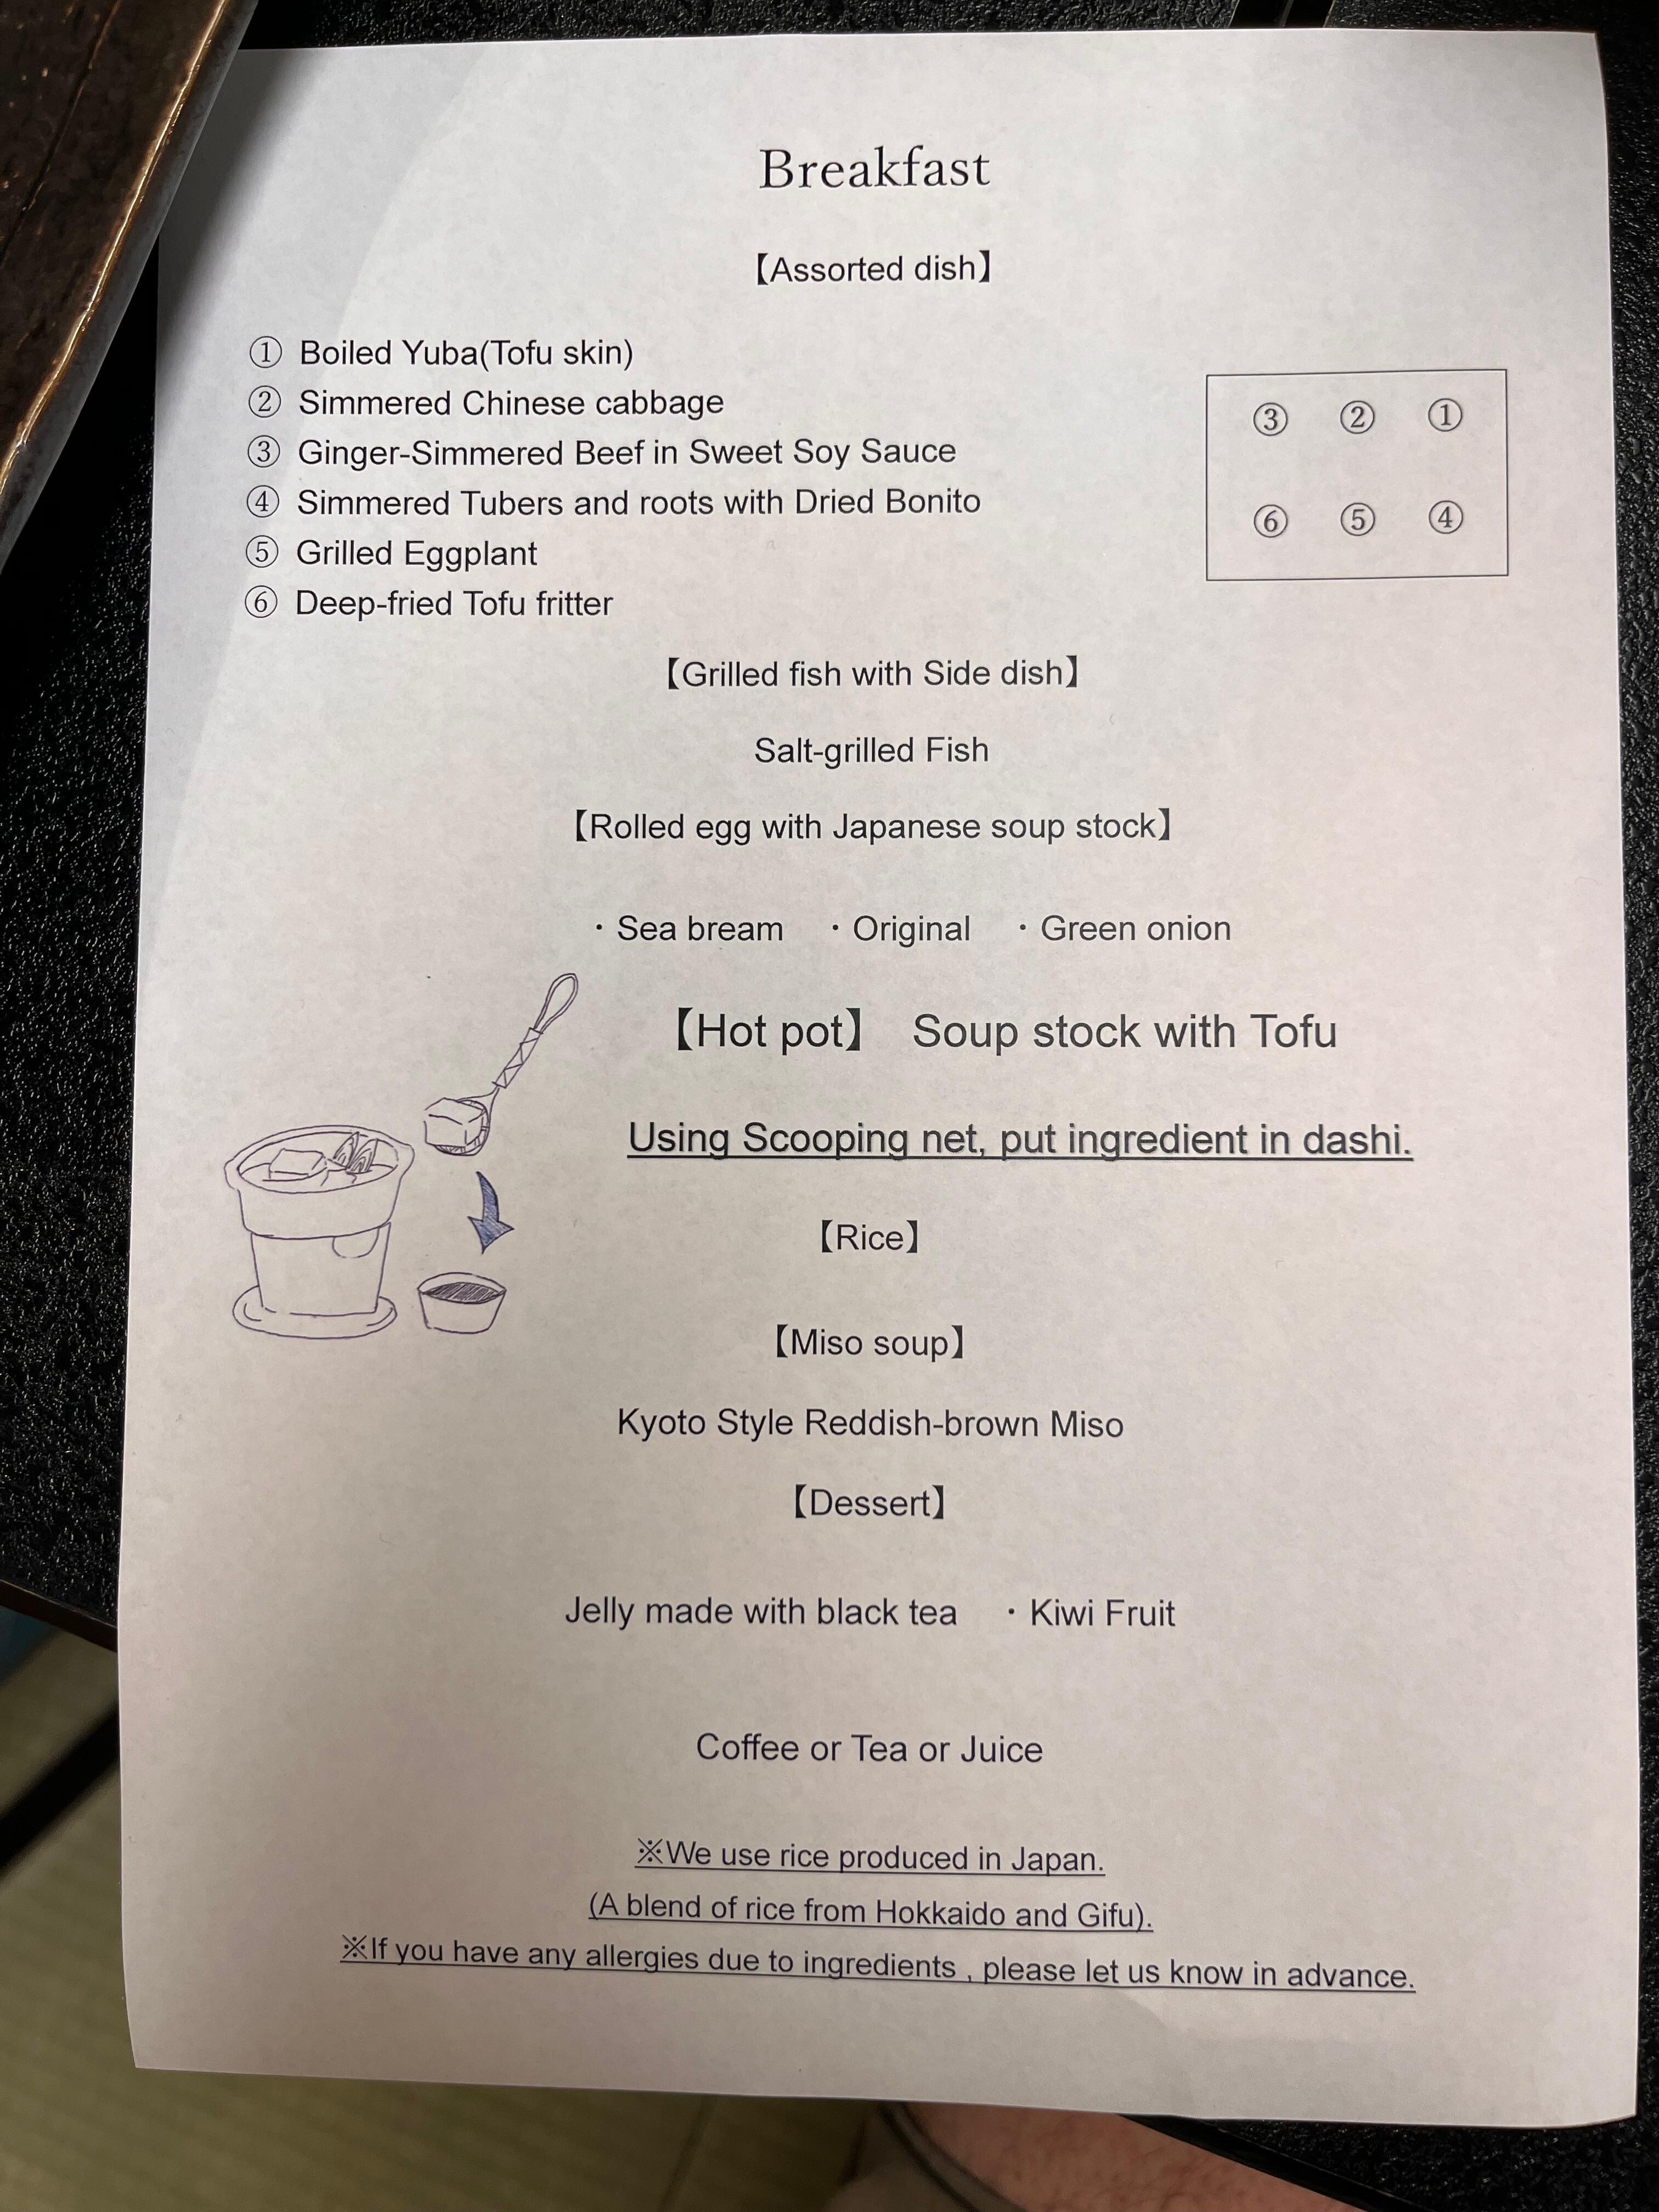 Breakfast
【Assorted dish】
① Boiled Yuba(Tofu skin)
② Simmered Chinese cabbage
③ Ginger-Simmered Beef in Sweet Soy Sauce
④ Simmered Tubers and roots with Dried Bonito
⑤ Grilled Eggplant
⑥ Deep-fried Tofu fritter
③ ② ①
⑥ ⑤ ④
【Grilled fish with Side dish】
Salt-grilled Fish
【Rolled egg with Japanese soup stock】
・Sea bream ・Original ・Green onion
【Hot pot】 Soup stock with Tofu
Using Scooping net, put ingredient in dashi.
【Rice】
【Miso soup】
Kyoto Style Reddish-brown Miso
【Dessert】
Jelly made with black tea ・Kiwi Fruit
Coffee or Tea or Juice
※We use rice produced in Japan.
(A blend of rice from Hokkaido and Gifu).
※If you have any allergies due to ingredients , please let us know in advance.